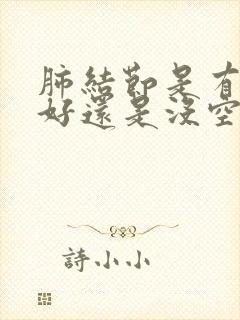 肺結節是有
好還是沒空
詩小小